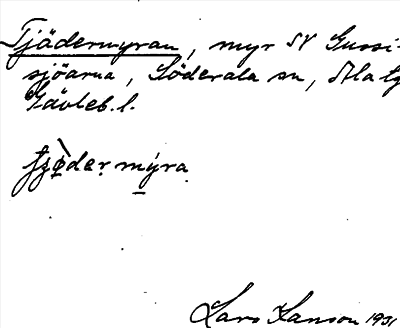 Tjädermyran, myr N Gussi-
sjöarna, Söderala sn, Ala tg
Gävleb. l.
Lars Hanson 1931